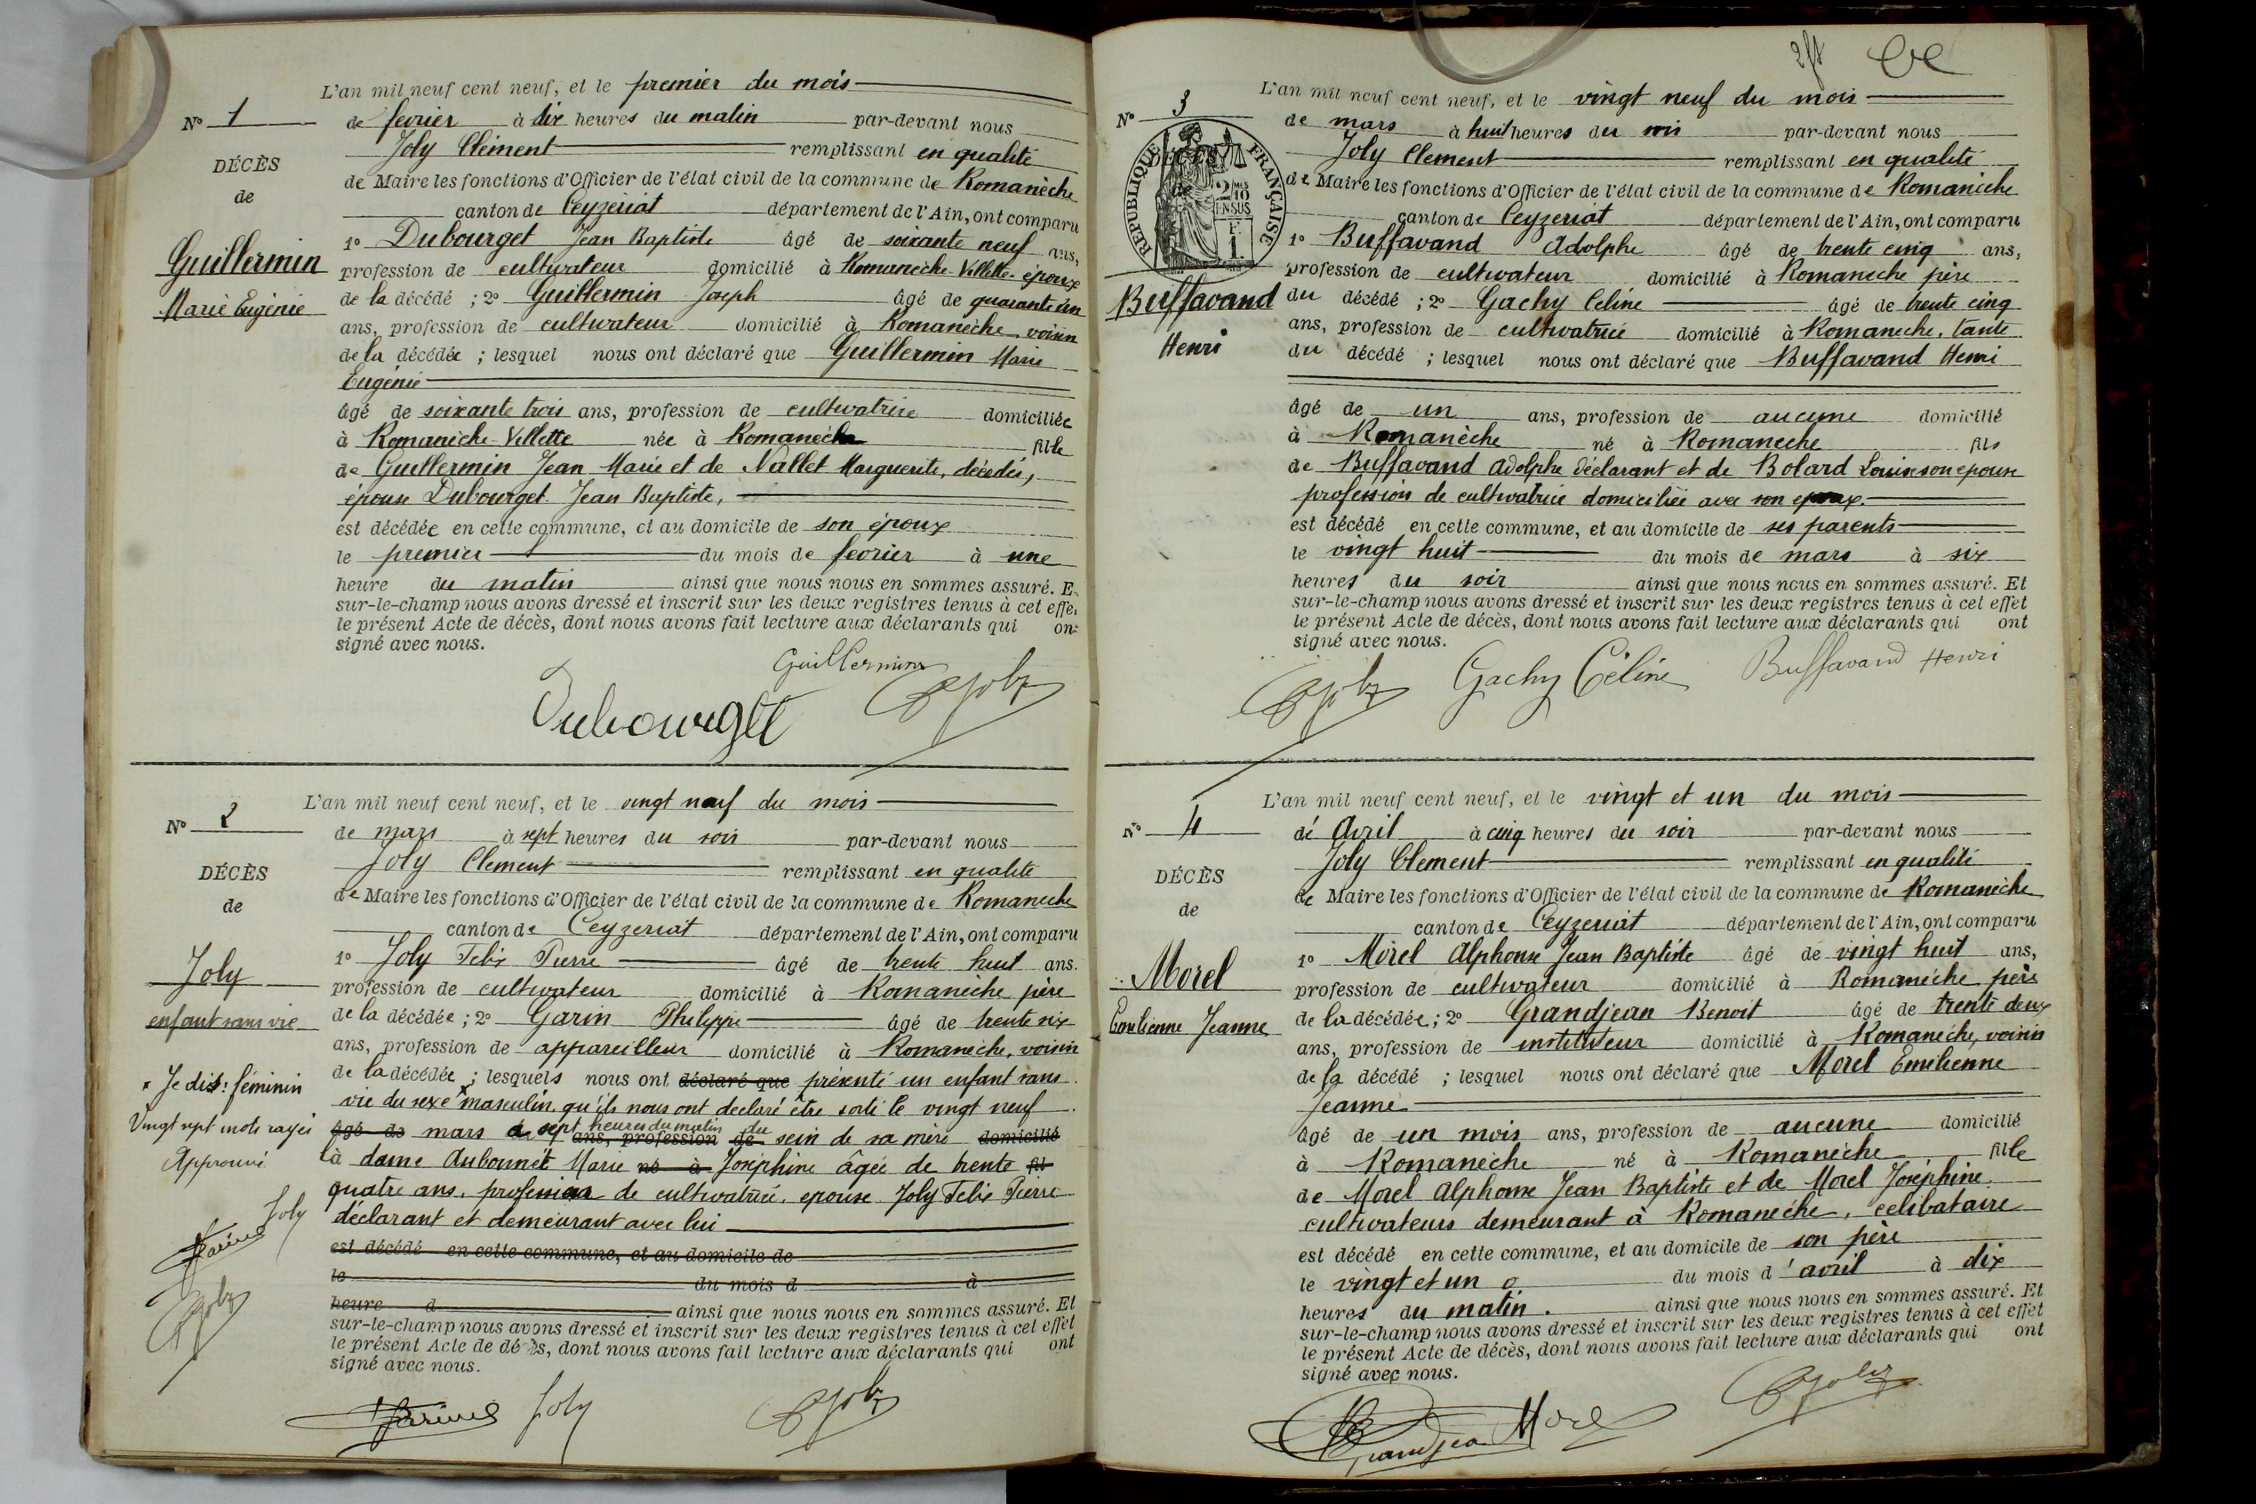 L'an mil neuf cent neuf, et le premier du mois
N° 1
de fevrier à dix heures du matin par-devant nous
Joly Clément remplissant en qualité
DÉCÈS
de Maire les fonctions d'Officier de l'état civil de la commune de Romanèche
de
canton de Ceyzeriat département de l'Ain, ont comparu
1° Dubourget Jean Baptiste âgé de soixante neuf ans,
Guillermin
profession de cultivateur domicilié à Romanèche-Villette époux
Marie Eugénie
de la décédé ; 2° Guillermin Joseph âgé de quarante un
ans, profession de cultivateur domicilié à Romanèche voisin
de la décédée ; lesquel nous ont déclaré que Guillermin Marie
Eugénie
âgé de soixante trois ans, profession de cultivatrice domiciliée
à Romanèche-Villette née à Romanèche fille
de Guillermin Jean Marie et de Nallet Marguerite, décédés,
épouse Dubourget Jean Baptiste,
est décédée en cette commune, et au domicile de son époux
le premier du mois de fevrier à une
heure du matin ainsi que nous nous en sommes assuré. E
sur-le-champ nous avons dressé et inscrit sur les deux registres tenus à cet effe
le présent Acte de décès, dont nous avons fait lecture aux déclarants qui on
signé avec nous.
Guillermin
Dubourget
CJoly
L'an mil neuf cent neuf, et le vingt neuf du mois
N° 2
de mars à sept heures du soir par-devant nous
Joly Clement remplissant en qualité
DÉCÈS
de Maire les fonctions d'Officier de l'état civil de la commune de Romaneche
de
canton de Ceyzeriat département de l'Ain, ont comparu
1° Joly Felix Pierre âgé de trente huit ans.
Joly
profession de cultivateur domicilié à Romanèche père
enfant sans vie
de la décédée ; 2° Garin Philippe âgé de trente six
ans, profession de appareilleur domicilié à Romanèche, voisin
x Je dis : féminin
de la décédée ; lesquels nous ont déclaré que présenté un enfant sans
Vingt sept mots rayés
vie du sexe x masculin qu'ils nous ont declaré être sorti le vingt neuf
âgé de mars à sept heures du matin ans, profession de du sein de sa mère domicilié
Approuvé
à dame Aubonnet Marie né à Joséphine âgée de trente fil
quatre ans, profession de cultivatrice, epouse Joly Felix Pierre
Joly
déclarant et demeurant avec lui
est décédé en cette commune, et au domicile de
le du mois d à
CJoly
heure d ainsi que nous nous en sommes assuré. Et
sur-le-champ nous avons dressé et inscrit sur les deux registres tenus à cet effet
le présent Acte de décès, dont nous avons fait lecture aux déclarants qui ont
signé avec nous.
Joly CJoly
L'an mil neuf cent neuf, et le vingt neuf du mois
N° 3
de mars à huit heures du soir par-devant nous
Joly Clement remplissant en qualité
DÉCÈS
de
RÉPUBLIQUE FRANÇAISE
2/10 EN SUS
1
de Maire les fonctions d'Officier de l'état civil de la commune de Romanèche
canton de Ceyzeriat département de l'Ain, ont comparu
1° Buffavand Adolphe âgé de trente cinq ans,
profession de cultivateur domicilié à Romaneche père
Buffavand
du décédé ; 2° Gachy Céline âgé de trente cinq
ans, profession de cultivatrice domicilié à Romaneche, tante
Henri
du décédé ; lesquel nous ont déclaré que Buffavand Henri
âgé de un ans, profession de aucune domicilié
à Romanèche né à Romaneche fils
de Buffavand Adolphe déclarant et de Bolard Louise son epouse
profession de cultivatrice domiciliée avec son epoux.
est décédé en cette commune, et au domicile de ses parents
le vingt huit du mois de mars à six
heures du soir ainsi que nous nous en sommes assuré. Et
sur-le-champ nous avons dressé et inscrit sur les deux registres tenus à cet effet
le présent Acte de décès, dont nous avons fait lecture aux déclarants qui ont
signé avec nous.
CJoly Gachy Céline Buffavand Henri
L'an mil neuf cent neuf, et le vingt et un du mois
N° 4
de Avril à cinq heures du soir par-devant nous
Joly Clement remplissant en qualité
DÉCÈS
de Maire les fonctions d'Officier de l'état civil de la commune de Romanèche
de
canton de Ceyzeriat département de l'Ain, ont comparu
1° Morel Alphonse Jean Baptiste âgé de vingt huit ans,
Morel
profession de cultivateur domicilié à Romanèche père
Emilienne Jeanne
de la décédée ; 2° Grandjean Benoit âgé de trente deux
ans, profession de instituteur domicilié à Romanèche, voisin
de la décédé ; lesquel nous ont déclaré que Morel Emilienne
Jeanne
âgé de un mois ans, profession de aucune domicilié
à Romanèche né à Romanèche fille
de Morel Alphonse Jean Baptiste et de Morel Joséphine
cultivateurs demeurant à Romanéche, celibataire
est décédé en cette commune, et au domicile de son père
le vingt et un du mois d'avril à dix
heures du matin. ainsi que nous nous en sommes assuré. Et
sur-le-champ nous avons dressé et inscrit sur les deux registres tenus à cet effet
le présent Acte de décès, dont nous avons fait lecture aux déclarants qui ont
signé avec nous.
Grandjean Morel CJoly